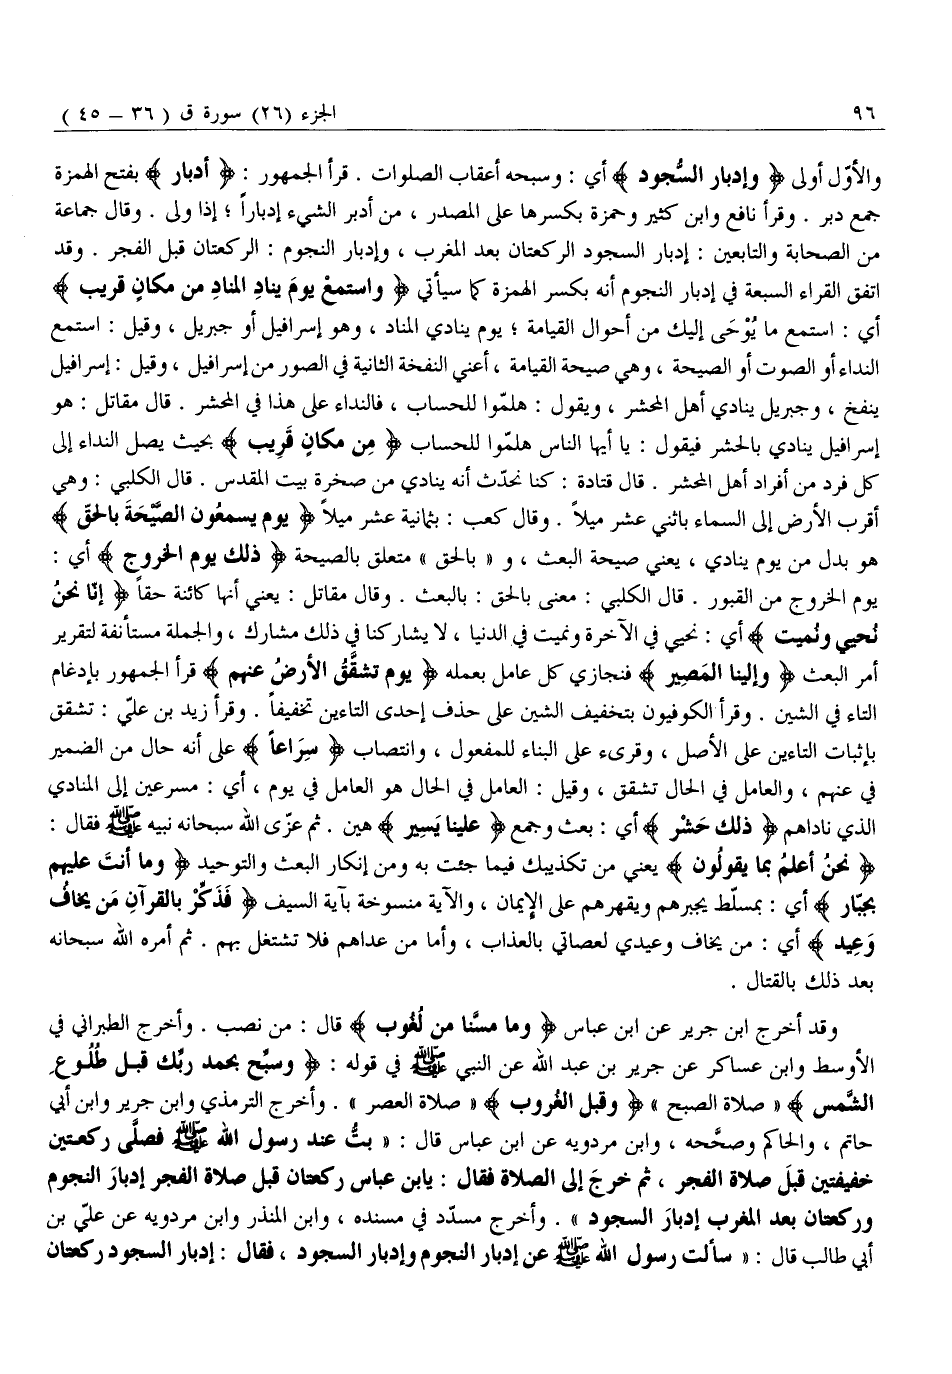 ٩٦ الجزء (٢٦) سورة ق ( ٣٦ – ٤٥ )
والأوّل أولى ﴿ وإدبار السُّجود ﴾ أي : وسبحه أعقاب الصلوات . قرأ الجمهور : ﴿ أدبار ﴾ بفتح الهمزة
جمع دبر . وقرأ نافع وابن كثير وحمزة بكسرها على المصدر ، من أدبر الشيء إدباراً ؛ إذا ولى . وقال جماعة
من الصحابة والتابعين : إدبار السجود الركعتان بعد المغرب ، وإدبار النجوم : الركعتان قبل الفجر . وقد
اتفق القراء السبعة في إدبار النجوم أنه بكسر الهمزة كما سيأتي ﴿ واستمعْ يومَ ينادِ المنادِ من مكانٍ قريب ﴾
أي : استمع ما يُوْحَى إليك من أحوال القيامة ؛ يوم ينادي المناد ، وهو إسرافيل أو جبريل ، وقيل : استمع
النداء أو الصوت أو الصيحة ، وهي صيحة القيامة ، أعني النفخة الثانية في الصور من إسرافيل ، وقيل : إسرافيل
ينفخ ، وجبريل ينادي أهل المحشر ، ويقول : هلمّوا للحساب ، فالنداء على هذا في المحشر . قال مقاتل : هو
إسرافيل ينادي بالحشر فيقول : يا أيها الناس هلمّوا للحساب ﴿ مِن مكانٍ قَرِيب ﴾ بحيث يصل النداء إلى
كل فرد من أفراد أهل المحشر . قال قتادة : كنا نحدّث أنه ينادي من صخرة بيت المقدس . قال الكلبي : وهي
أقرب الأرض إلى السماء باثني عشر ميلاً . وقال كعب : بثمانية عشر ميلاً ﴿ يوم يسمعُون الصَّيْحَةَ بالحقّ ﴾
هو بدل من يوم ينادي ، يعني صيحة البعث ، و « بالحق » متعلق بالصيحة ﴿ ذلك يوم الخروج ﴾ أي :
يوم الخروج من القبور . قال الكلبي : معنى بالحق : بالبعث . وقال مقاتل : يعني أنها كائنة حقاً ﴿ إنّا نحنُ
نُحيي ونُميت ﴾ أي : نحيي في الآخرة ونميت في الدنيا ، لا يشاركنا في ذلك مشارك ، والجملة مستأنفة لتقرير
أمر البعث ﴿ وإلينا المَصِير ﴾ فنجازي كل عامل بعمله ﴿ يوم تشقَّقُ الأرضُ عنهم ﴾ قرأ الجمهور بإدغام
التاء في الشين . وقرأ الكوفيون بتخفيف الشين على حذف إحدى التاءين تخفيفاً . وقرأ زيد بن عليّ : تتشقق
بإثبات التاءين على الأصل ، وقرىء على البناء للمفعول ، وانتصاب ﴿ سِرَاعاً ﴾ على أنه حال من الضمير
في عنهم ، والعامل في الحال تشقق ، وقيل : العامل في الحال هو العامل في يوم ، أي : مسرعين إلى المنادي
الذي ناداهم ﴿ ذلك حَشْر ﴾ أي : بعث وجمع ﴿ علينا يَسِير ﴾ هين . ثم عزّى الله سبحانه نبيه ﷺ فقال :
﴿ نحنُ أعلمُ بما يقولُون ﴾ يعني من تكذيبك فيما جئت به ومن إنكار البعث والتوحيد ﴿ وما أنتَ عليهم
بجبّار ﴾ أي : بمسلّط يجبرهم ويقهرهم على الإيمان ، والآية منسوخة بآية السيف ﴿ فَذَكِّرْ بالقرآنِ مَن يخافُ
وَعِيد ﴾ أي : من يخاف وعيدي لعصاتي بالعذاب ، وأما من عداهم فلا تشتغل بهم . ثم أمره الله سبحانه
بعد ذلك بالقتال .
وقد أخرج ابن جرير عن ابن عباس ﴿ وما مسَّنا من لُغُوب ﴾ قال : من نصب . وأخرج الطبراني في
الأوسط وابن عساكر عن جرير بن عبد الله عن النبي ﷺ في قوله : ﴿ وسبّح بحمد ربّك قبل طلُوع
الشَّمس ﴾ « صلاة الصبح » ﴿ وقبل الغُروب ﴾ « صلاة العصر » . وأخرج الترمذي وابن جرير وابن أبي
حاتم ، والحاكم وصحَّحه ، وابن مردويه عن ابن عباس قال : « بتُّ عند رسول الله ﷺ فصلَّى ركعتين
خفيفتين قبلَ صلاة الفجر ، ثم خرجَ إلى الصلاة فقال : يابن عباس ركعتان قبل صلاة الفجر إدبارَ النجوم
وركعتان بعد المغرب إدبارَ السجود » . وأخرج مسدّد في مسنده ، وابن المنذر وابن مردويه عن عليّ بن
أبي طالب قال : « سألت رسول الله ﷺ عن إدبار النجوم وإدبار السجود ، فقال : إدبار السجود ركعتان